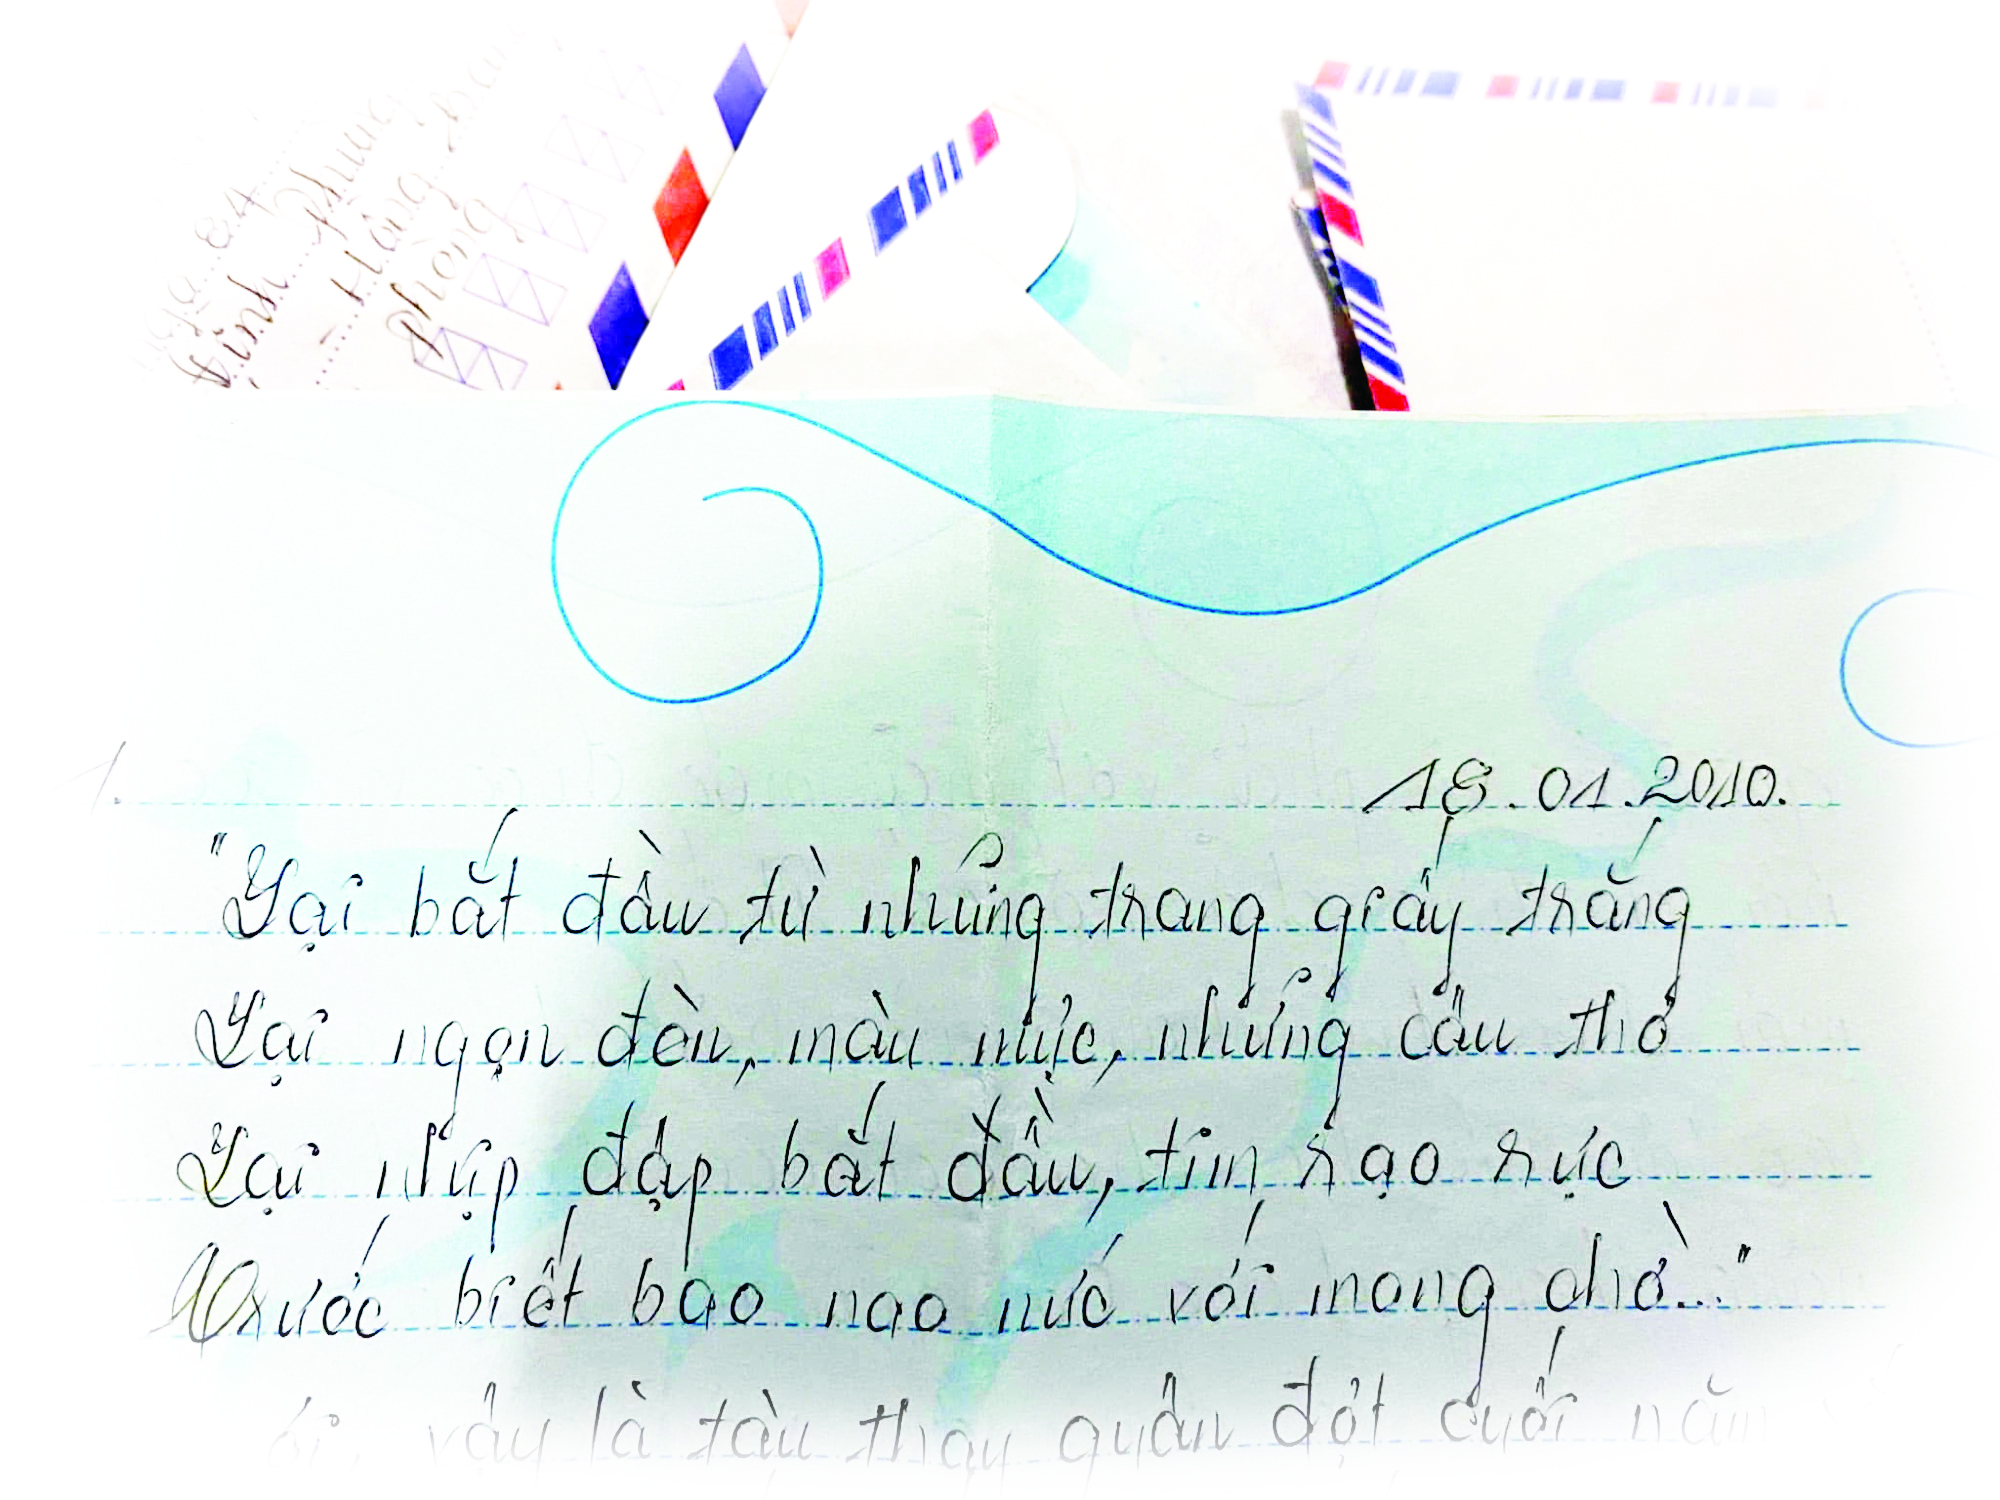 8A
Bình Phương
Hồng
phòng
1.
18.01.2010.
"Lại bắt đầu từ những trang giấy trắng
Lại ngọn đèn, màu mực, những câu thơ
Lại nhịp đập bắt đầu, tim rạo rực
Trước biết bao nao nức với mong chờ..."
ơi, vậy là tàu thay quân đợt cuối năm